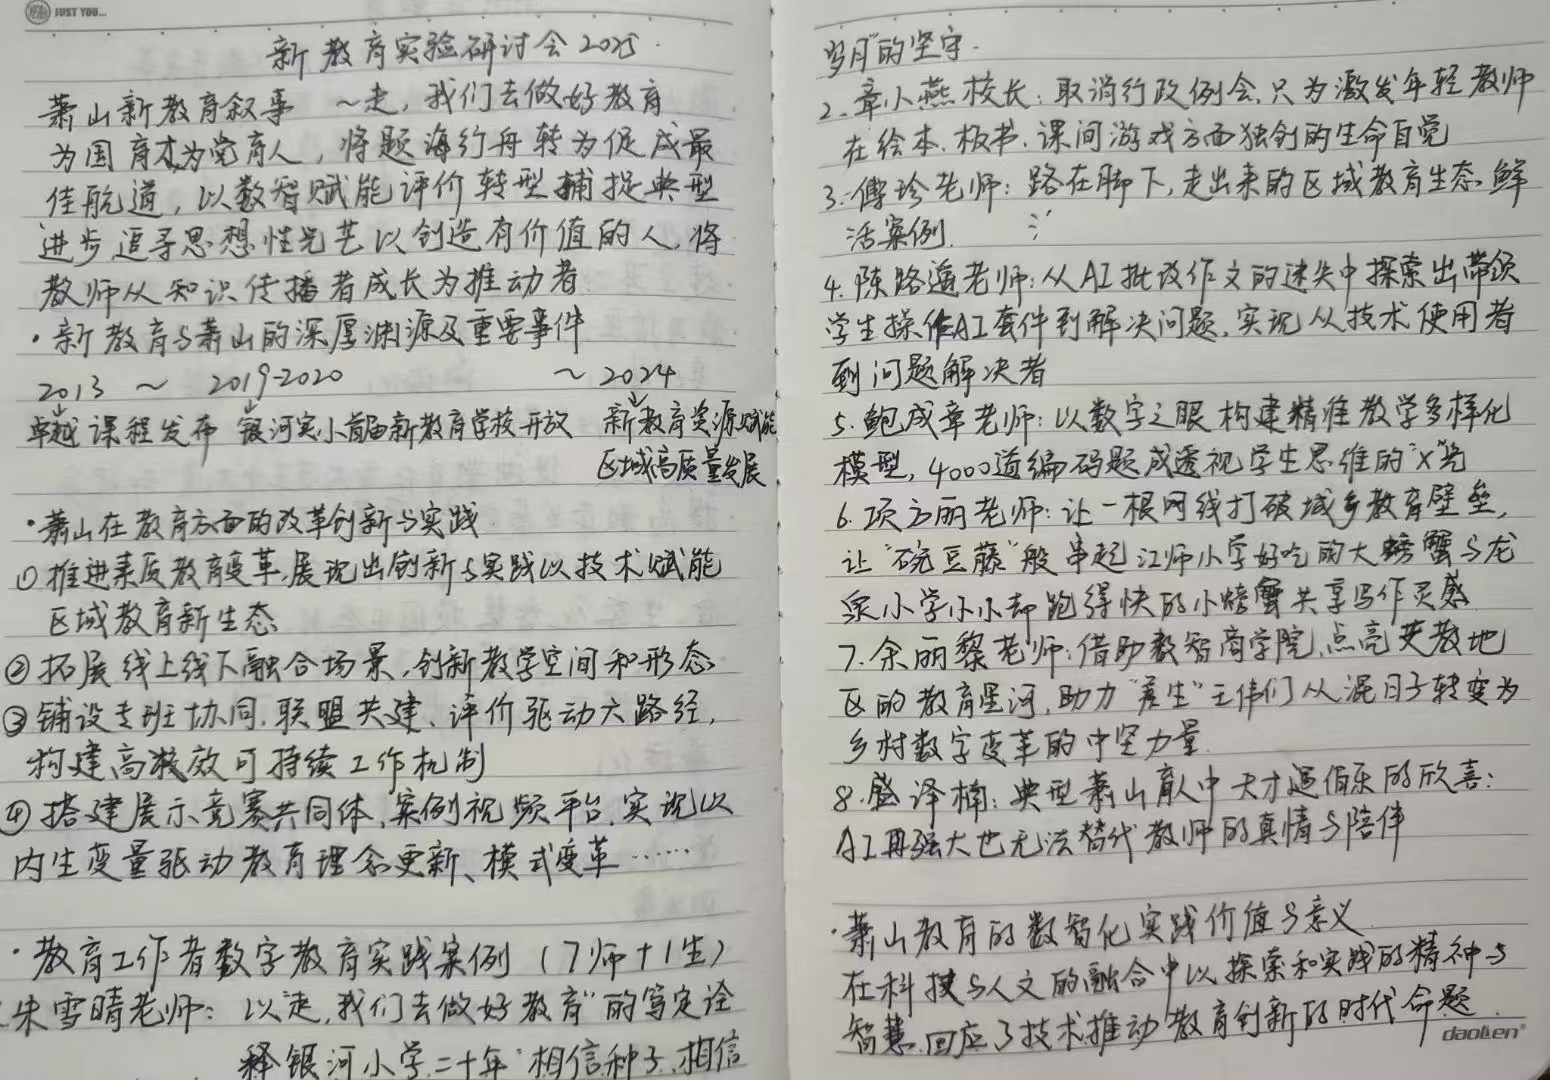 JUST YOU...
新教育实验研讨会2025.
萧山新教育叙事 ~走,我们去做好教育
为国育才为党育人,将题海行舟转为促成最
佳航道,以数智赋能评价转型捕捉典型
进步,追寻思想性光芒以创造有价值的人,将
教师从知识传播者成长为推动者
·新教育与萧山的深厚渊源及重要事件
2013 ~ 2019-2020 ~ 2024
卓越课程发布 银河实小首届新教育学校开放 新教育资源赋能
区域高质量发展
·萧山在教育方面的改革创新与实践
①推进素质教育变革,展现出创新与实践以技术赋能
区域教育新生态
②拓展线上线下融合场景,创新教学空间和形态
③铺设专班协同、联盟共建、评价驱动六路径,
构建高效可持续工作机制
④搭建展示竞赛共同体、案例视频平台,实现以
内生变量驱动教育理念更新、模式变革……
·教育工作者数字教育实践案例(7师+1生)
朱雪晴老师:以"走,我们去做好教育"的笃定诠
释银河小学二十年"相信种子、相信
岁月"的坚守.
2.章小燕校长:取消行政例会,只为激发年轻教师
在绘本、板书、课间游戏方面独创的生命自觉
3.傅珍老师:路在脚下,走出来的区域教育生态鲜
活案例.
4.陈路遥老师:从AI批改作文的迷失中探索出带领
学生操作AI套件到解决问题,实现从技术使用者
到问题解决者
5.鲍成章老师:以数字之眼构建精准教学多样化
模型,4000道编码题成透视学生思维的"X"光
6.项方丽老师:让一根网线打破城乡教育壁垒,
让"豌豆藤"般串起江师小学好吃的大螃蟹与龙
泉小学小小却跑得快的小螃蟹共享写作灵感
7.余丽黎老师:借助数智商学院,点亮支教地
区的教育星河,助力"差生"王伟们从混日子转变为
乡村数字变革的中坚力量.
8.盛泽楠:典型萧山育人中天才遇伯乐的欣喜:
AI再强大也无法替代教师的真情与陪伴
·萧山教育的数智化实践价值与意义
在科技与人文的融合中以探索和实践的精神与
智慧,回应了技术推动教育创新的时代命题.
daolen®